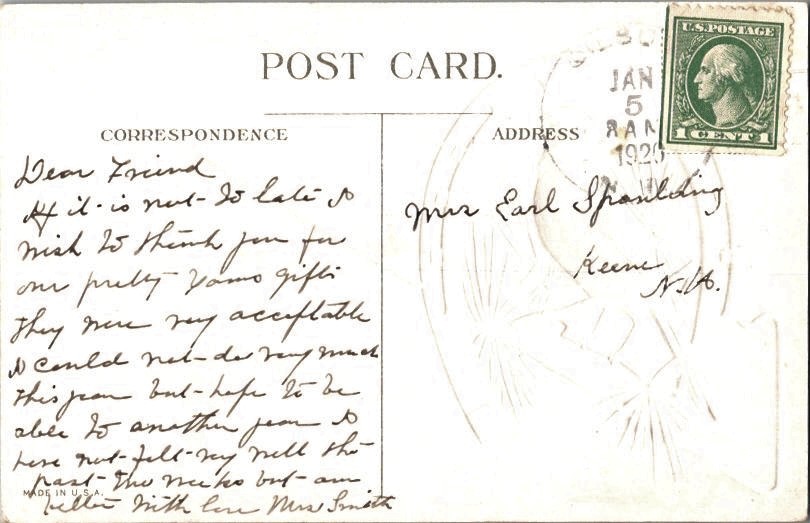 POST CARD.
CORRESPONDENCE
ADDRESS
U.S. POSTAGE
1 CENT 1
JAN
5
8 AM
1920
N.H.
Dear Friend
If it is not to late I
wish to thank you for
our pretty Xmas gifts
they were very acceptable
I could not do very much
this year but hope to be
able to another year I
have not felt very well the
past two weeks but am
better with love Mrs Smith
Mrs Earl Spaulding
Keene
N.H.
MADE IN U.S.A.